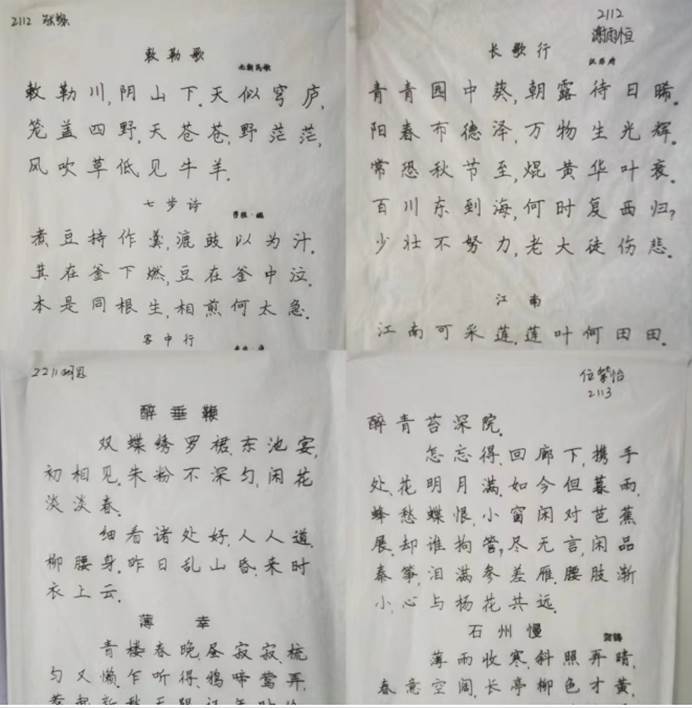 2112
敕勒歌
北朝民歌
敕勒川,阴山下.天似穹庐,
笼盖四野.天苍苍,野茫茫,
风吹草低见牛羊.
七步诗
煮豆持作羹,漉豉以为汁.
萁在釜下燃,豆在釜中泣.
本是同根生,相煎何太急.
客中行
2112
谢雨恒
长歌行
汉乐府
青青园中葵,朝露待日晞.
阳春布德泽,万物生光辉.
常恐秋节至,焜黄华叶衰.
百川东到海,何时复西归?
少壮不努力,老大徒伤悲.
江南
江南可采莲,莲叶何田田.
2211
醉垂鞭
双蝶绣罗裙.东池宴,
初相见.朱粉不深匀,闲花
淡淡春.
细看诸处好.人人道.
柳腰身.昨日乱山昏.来时
衣上云.
薄幸
青楼春晚.昼寂寂.梳
匀又懒.乍听得.鸦啼莺弄,
惹起新愁无限.记年时
位紫怡
2113
醉青苔深院.
怎忘得.回廊下,携手
处.花明月满.如今但暮雨.
蜂愁蝶恨.小窗闲对芭蕉
展.却谁拘管,尽无言,闲品
秦筝,泪满参差雁.腰肢渐
小,心与杨花共远.
石州慢
贺铸
薄雨收寒,斜照弄晴,
春意空阔,长亭柳色才黄,